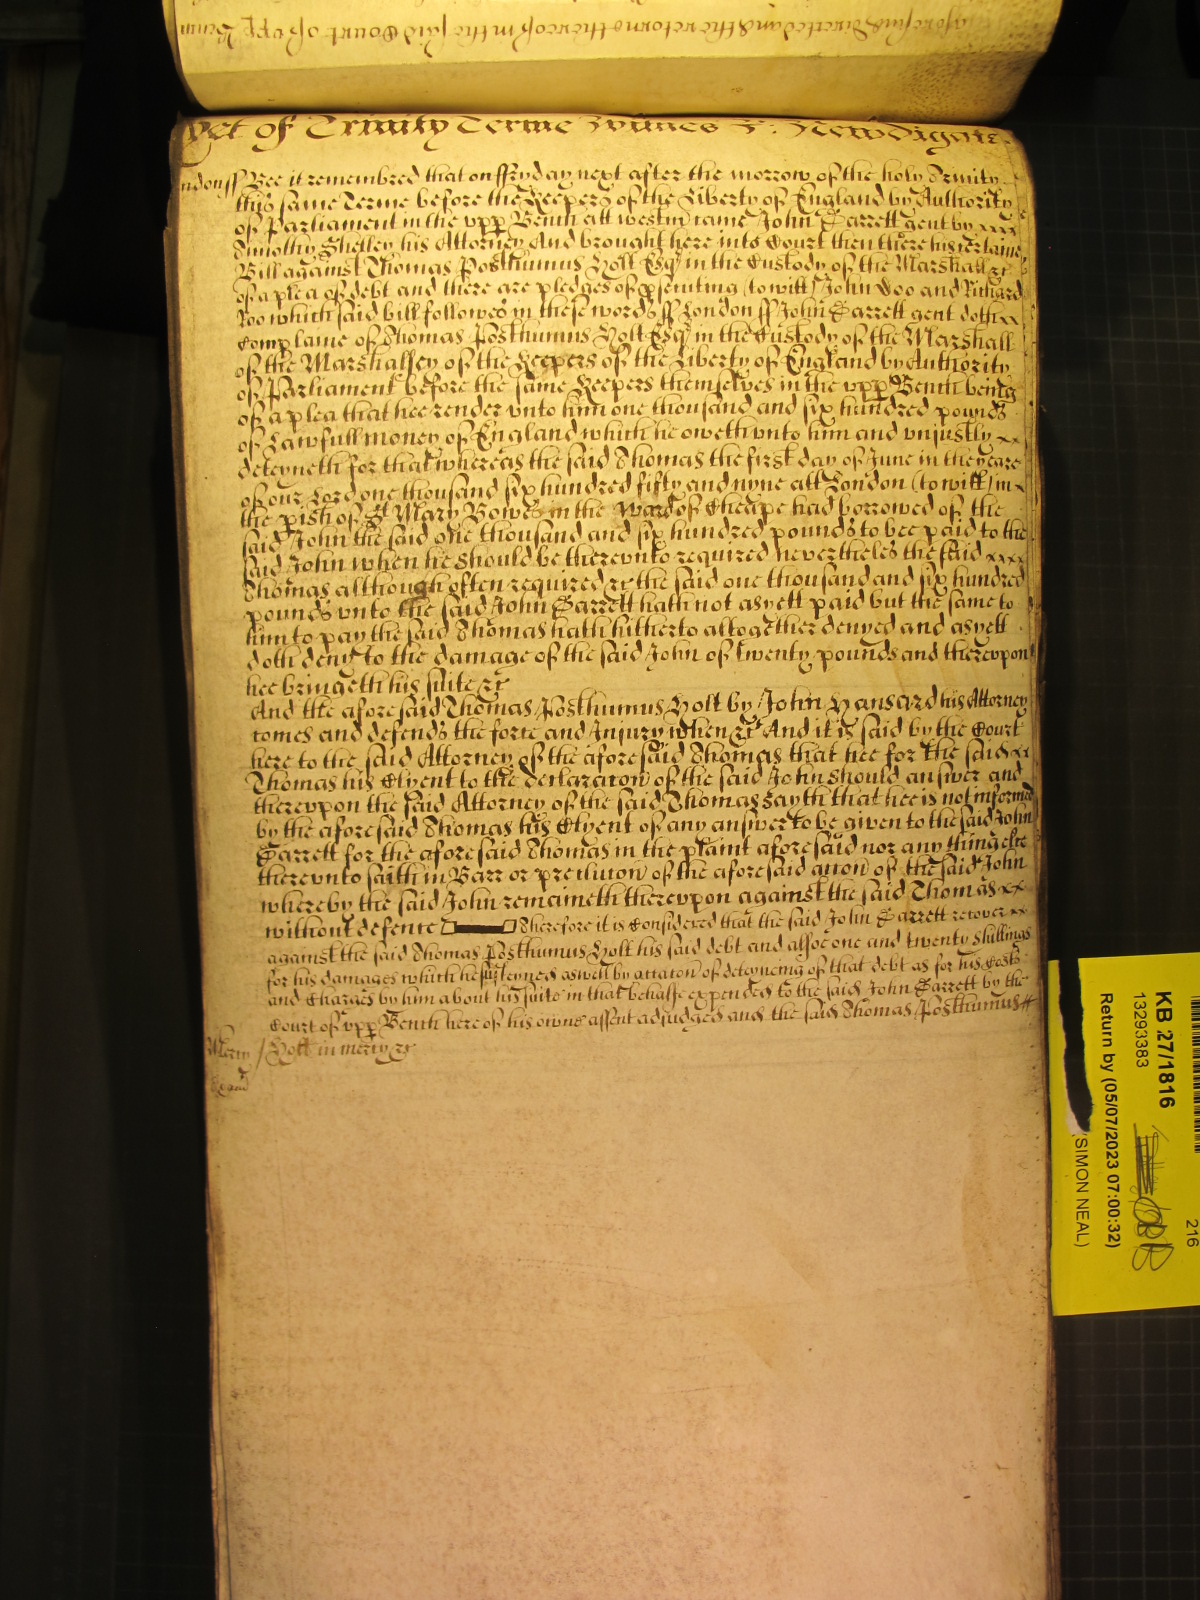 aforesaid directed and the retorne thereof in the said Court of vpp Bench
yet of Trinity Terme Wittnes R: Newdigate.
ndon ss Bee it remembred that on ffryday next after the morrow of the holy Trinity
this same Terme before the Keepers of the Liberty of England by Authority
of Parliament in the vpp Bench att westm came John Garrett gent by xxx
Timothy Shelley his Attorney And brought here into Court then there his certaine
Bill against Thomas Posthumus Holt Esq in the Custody of the Marshall &c
of a plea of debt and there are pledges of psecuting (to witt) John Doo and Richard
Roo which said bill followes in these words ss London ss John Garrett gent doth xx
Complaine of Thomas Posthumus Holt Esq in the Custody of the Marshall
of the Marshalsey of the Keepers of the Liberty of England by Authority
of Parliament before the same Keepers themselves in the vpp Bench being
of a plea that hee render vnto him one thousand and six hundred pounds
of Lawfull money of England which he oweth vnto him and vniustly xx
deteyneth for that whereas the said Thomas the first day of June in the yeare
of our Lord one thousand six hundred fifty and nyne att London (to witt) in x
the pish of St Mary Bowes in the Ward of Cheape had borrowed of the
said John the said one thousand and six hundred pounds to bee paid to the
said John when he should be therevnto required neverthelesse the said xxx
Thomas although often required &c the said one thousand and six hundred
pounds vnto the said John Garrett hath not as yett paid but the same to
him to pay the said Thomas hath hitherto altogether denyed and as yett
doth deny to the damage of the said John of twenty pounds and therevpon
hee bringeth his suite &c
And the aforesaid Thomas Posthumus Holt by John Hansard his Attorney
comes and defends the force and Iniury when &c And it is said by the Court
here to the said Attorney of the aforesaid Thomas that hee for the said xx
Thomas his Clyent to the declaracon of the said John should answer and
therevpon the said Attorney of the said Thomas sayth that hee is not informed
by the aforesaid Thomas his Clyent of any answer to be given to the said John
Garrett for the aforesaid Thomas in the plaint aforesaid nor any thing else
therevnto saith in Barr or preclucon of the aforesaid accon of the said John
whereby the said John remaineth therevpon against the said Thomas xx
without defence Therefore it is Considered that the said John Garrett recover xx
against the said Thomas Posthumus Holt his said debt and alsoe one and twenty shillings
for his damages which he susteyned aswell by occacon of deteyneing of that debt as for his Costs
and Charges by him about his suite in that behalfe expended to the said John Garrett by the
Court of vpp Bench here of his owne assent adiudged and the said Thomas Posthumus
Mercy / Holt in mercy &c
KB 27/1816
13293383
Return by (05/07/2023 07:00:32)
(SIMON NEAL)
216